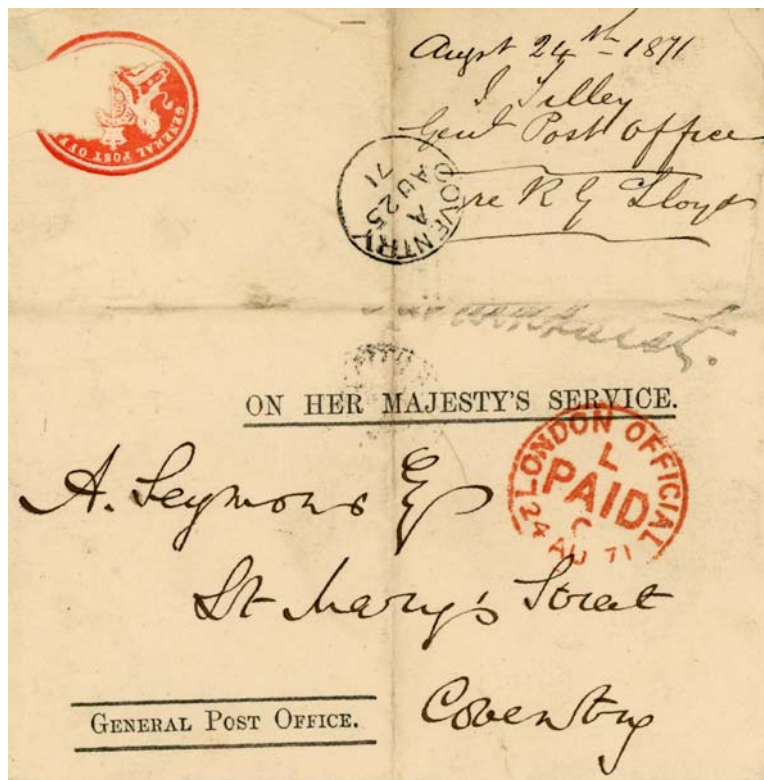 Augst 24th 1871
J Tilley
Genl Post Office
re R G Lloyd
GENERAL POST OF
COVENTRY
A
AU 25
71
ON HER MAJESTY'S SERVICE.
LONDON OFFICIAL
L
PAID
C
24 AU 71
A. Seymour Esq
St Mary's Street
Coventry
GENERAL POST OFFICE.